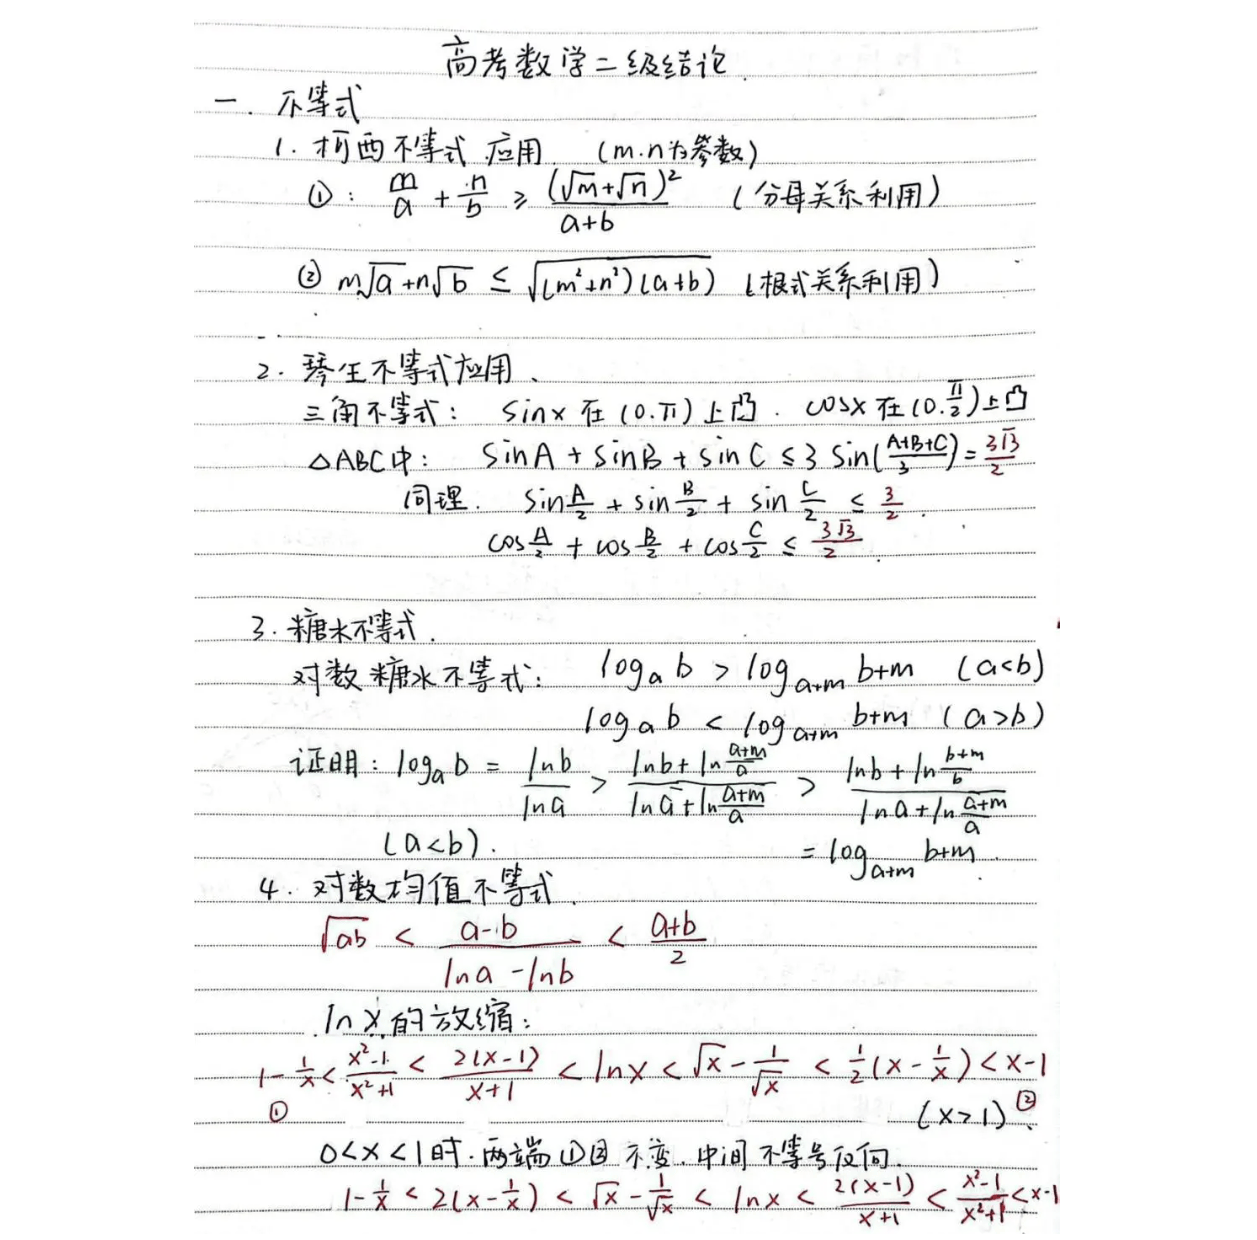 高考数学二级结论.
一. 不等式
1. 柯西不等式 应用. (m.n为参数)
①: m/a + n/b ≥ (√m+√n)²/(a+b) (分母关系利用)
② m√a+n√b ≤ √((m²+n²)(a+b)) (根式关系利用)
2. 琴生不等式应用.
三角不等式: sinx 在 (0.π) 上凸. cosx 在 (0.π/2) 上凸
△ABC中: sinA + sinB + sinC ≤ 3 sin((A+B+C)/3) = 3√3/2
同理. sin A/2 + sin B/2 + sin C/2 ≤ 3/2.
cos A/2 + cos B/2 + cos C/2 ≤ 3√3/2.
3. 糖水不等式.
对数糖水不等式: log_a b > log_{a+m} b+m (a<b)
log_a b < log_{a+m} b+m (a>b)
证明: log_a b = lnb/lna > (lnb + ln (a+m)/a)/(lna + ln (a+m)/a) > (lnb + ln (b+m)/b)/(lna + ln (a+m)/a)
(a<b). = log_{a+m} b+m.
4. 对数均值不等式.
√ab < (a-b)/(lna - lnb) < (a+b)/2
lnx 的放缩:
1 - 1/x < (x²-1)/(x²+1) < 2(x-1)/(x+1) < lnx < √x - 1/√x < 1/2(x - 1/x) < x-1
① (x>1) ②.
0<x<1时. 两端①②不变. 中间不等号反向.
1 - 1/x < 2(x - 1/x) < √x - 1/√x < lnx < 2(x-1)/(x+1) < (x²-1)/(x²+1) < x-1